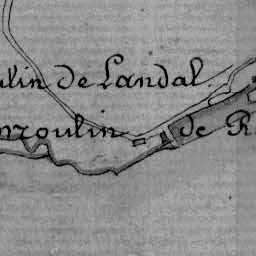 ulin de Landal
moulin de R